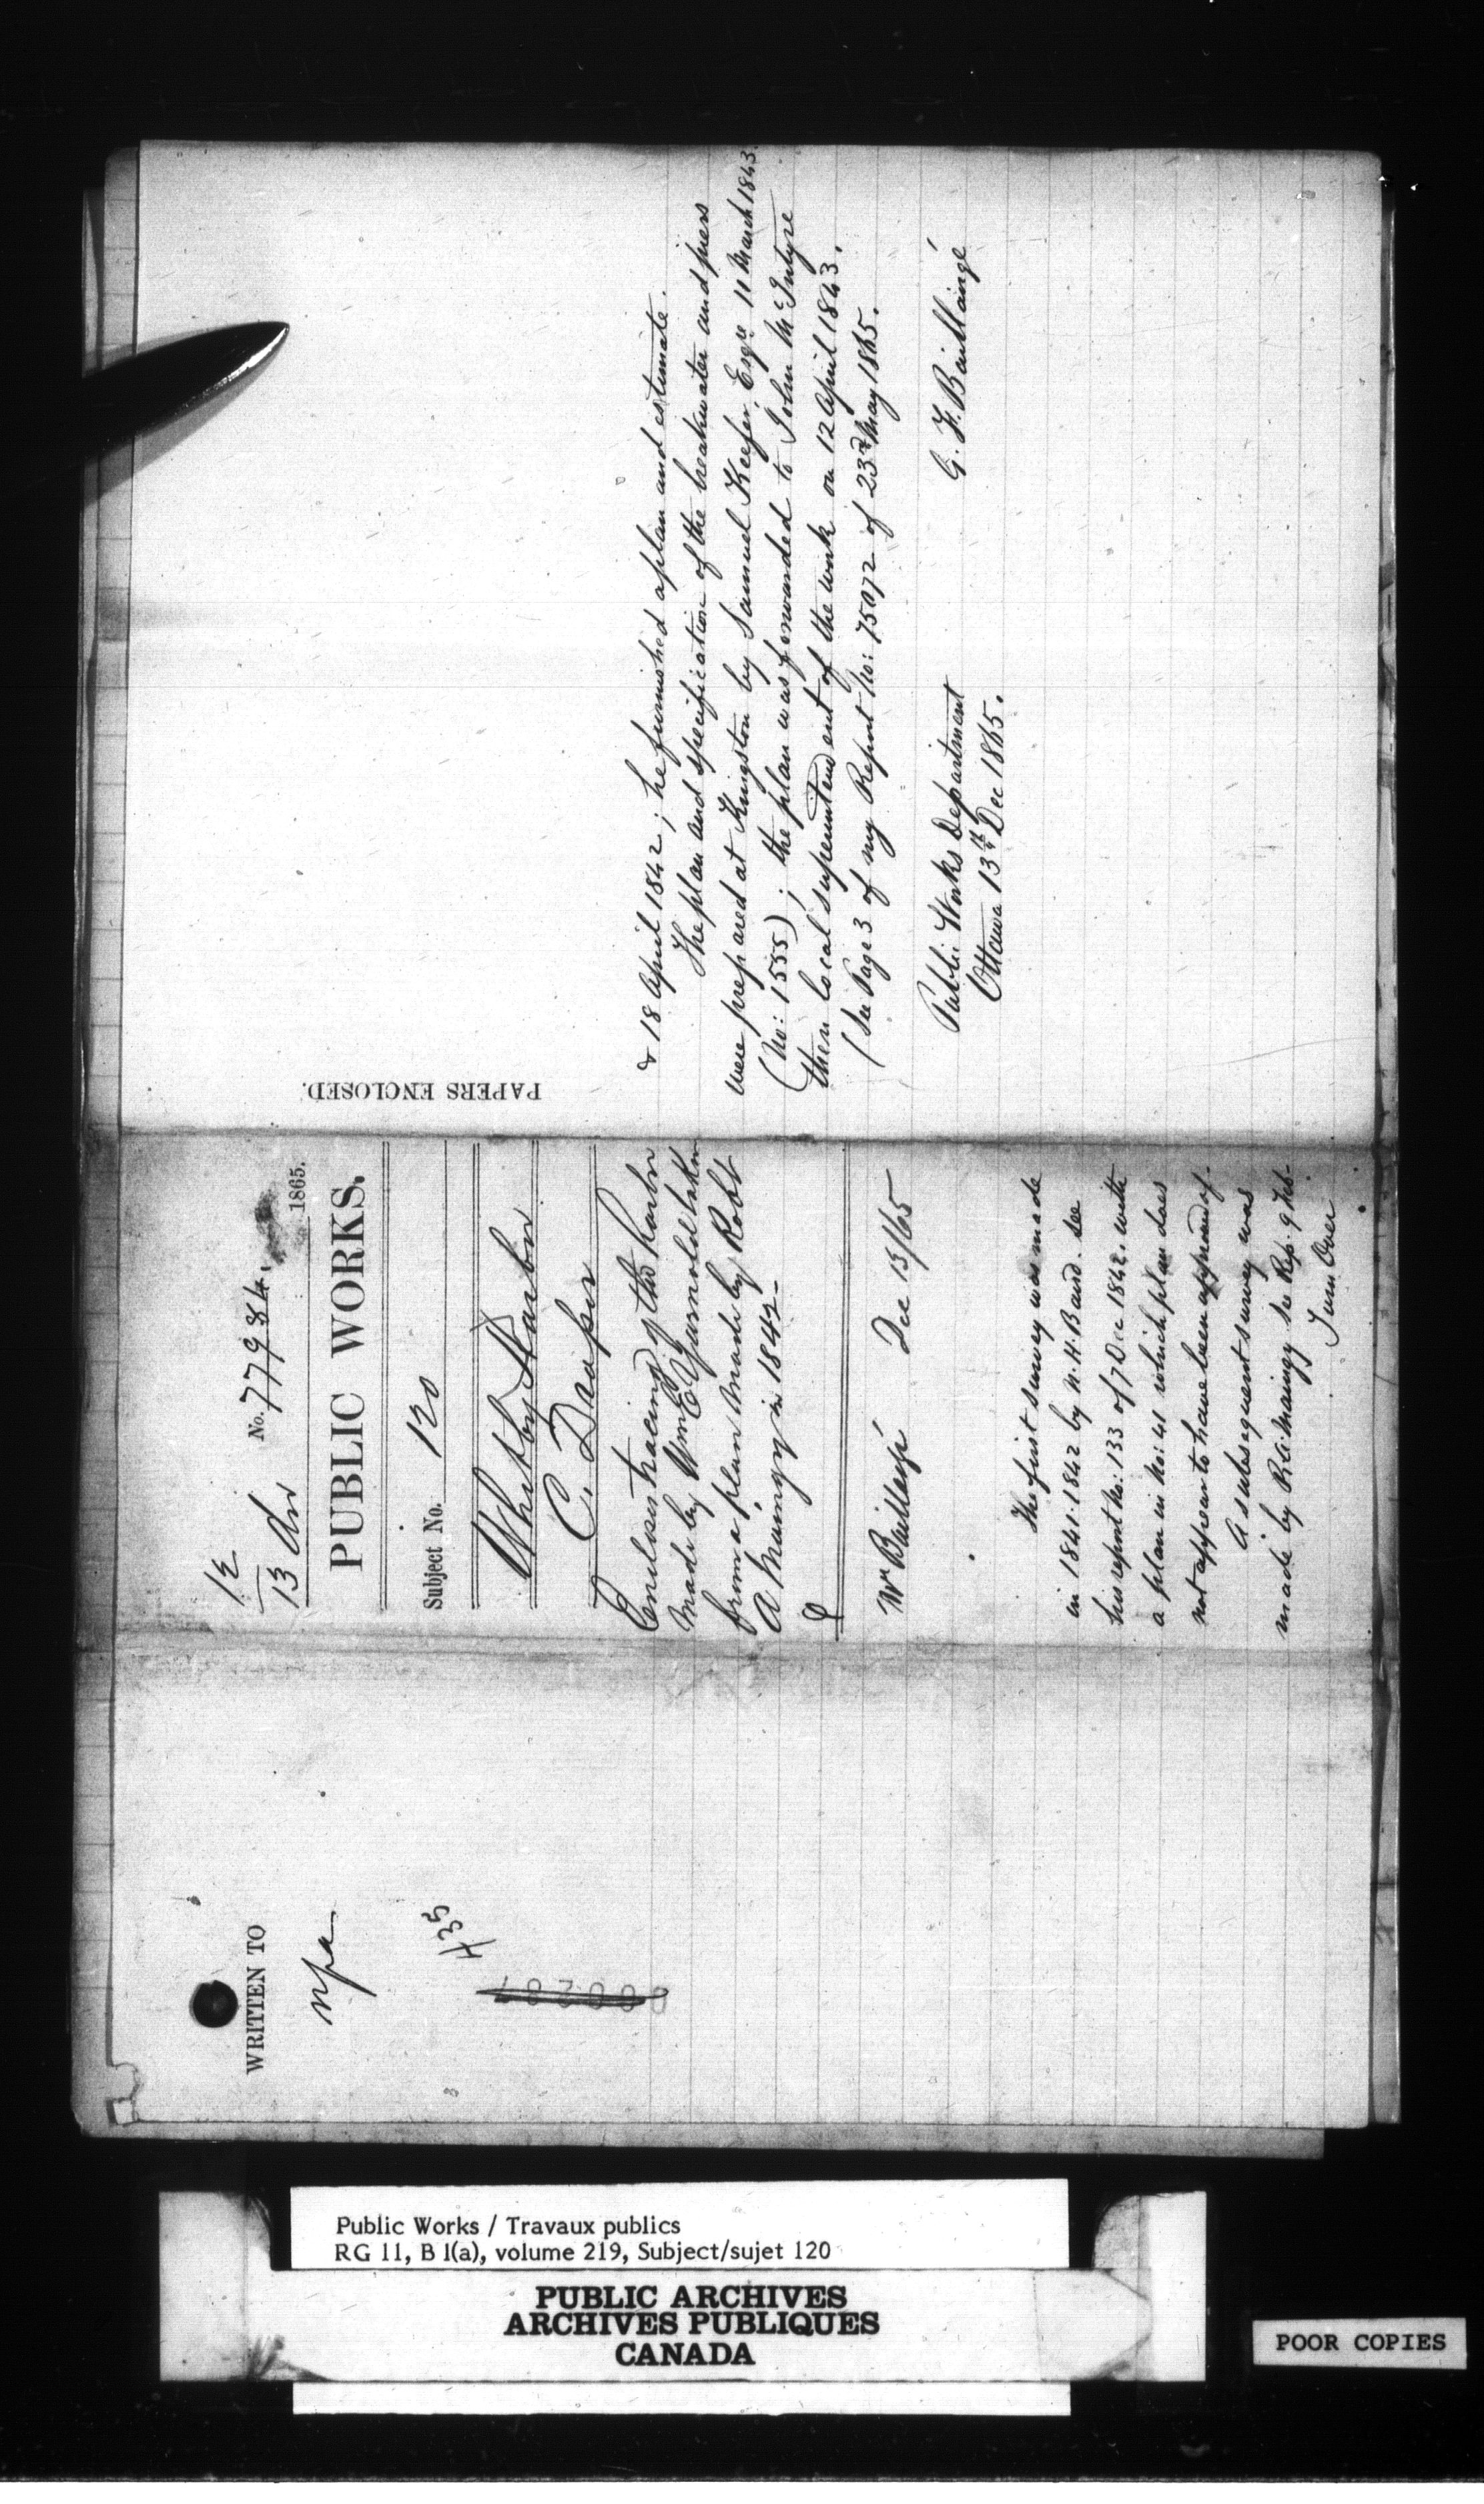 12
13 Dec
No. 77984. 1865.
PUBLIC WORKS.
Subject No. 120
Whitby Harbr
C. Draper
Encloses tracing of this Harbr
made by Wm E Yarnold taken
from a plan made by Robt
A Maingy in 1842-
Mr Baillairgé Dec 13/65
The first survey was made
in 1841.1842 by N. H. Baird. See
his report No: 133 of 7 Dec 1842. with
a plan in No: 41 which plan does
not appear to have been approved of.
A subsequent survey was
made by R. A. Maingy see Rep. 9 Feb.
Turn Over
& 18 April 1842; he furnished a plan and estimate.
The plan and specification of the breakwater and piers
were prepared at Kingston by Samuel Keefer, Esqre 11 March 1843.
(No: 1555); the plan was forwarded to John McIntyre
then local superintendent of the work on 12 April 1843.
(See Page 3 of my Report No: 75072 of 23d May 1865.
G. F. Baillairgé
Public Works Department
Ottawa 13th Dec 1865.
PAPERS ENCLOSED.
WRITTEN TO
npa
435
Public Works / Travaux publics
RG 11, B 1(a), volume 219, Subject/sujet 120
PUBLIC ARCHIVES
ARCHIVES PUBLIQUES
CANADA
POOR COPIES